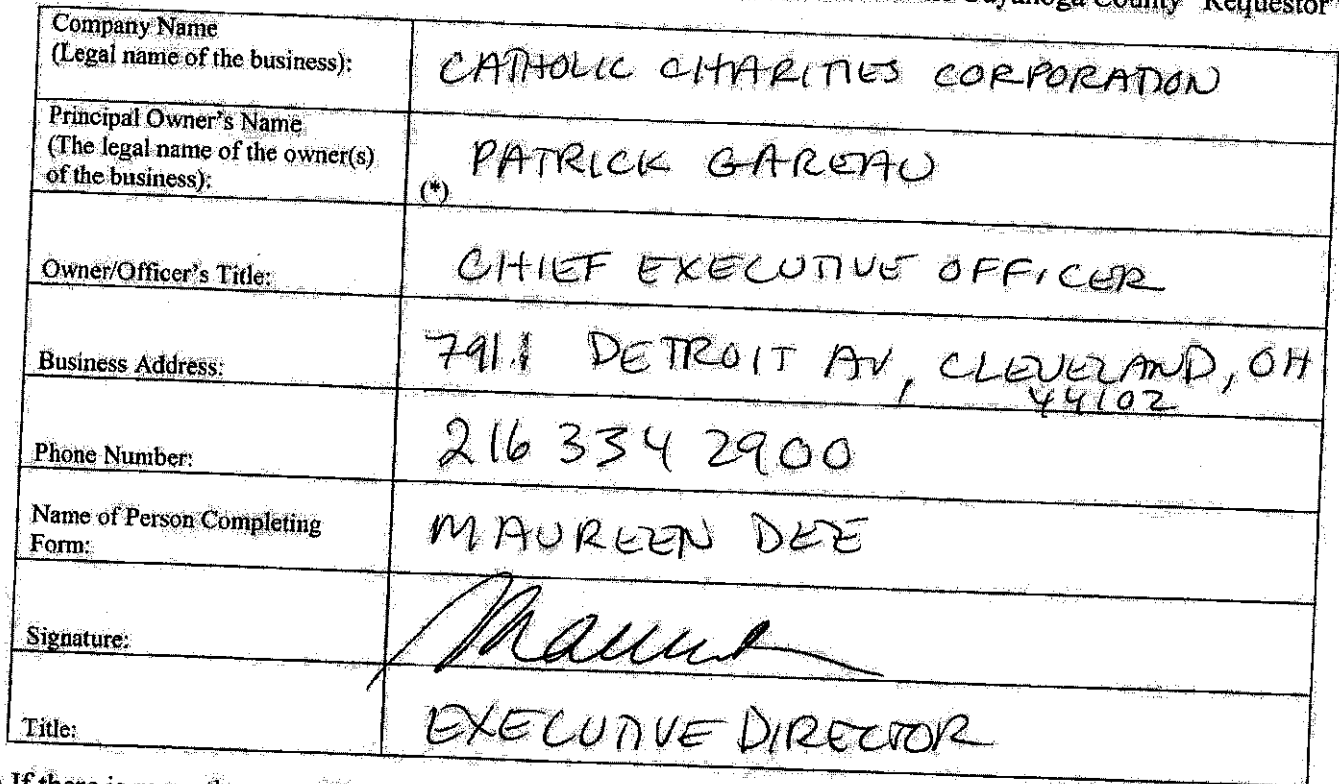 Cuyahoga County Requestor
Company Name
(Legal name of the business):
CATHOLIC CHARITIES CORPORATION
Principal Owner's Name
(The legal name of the owner(s)
of the business):
(*)
PATRICK GAREAU
Owner/Officer's Title:
CHIEF EXECUTIVE OFFICER
Business Address:
7911 DETROIT AV, CLEVELAND, OH
44102
Phone Number:
216 334 2900
Name of Person Completing
Form:
MAUREEN DEE
Signature:
Title:
EXECUTIVE DIRECTOR
If there is